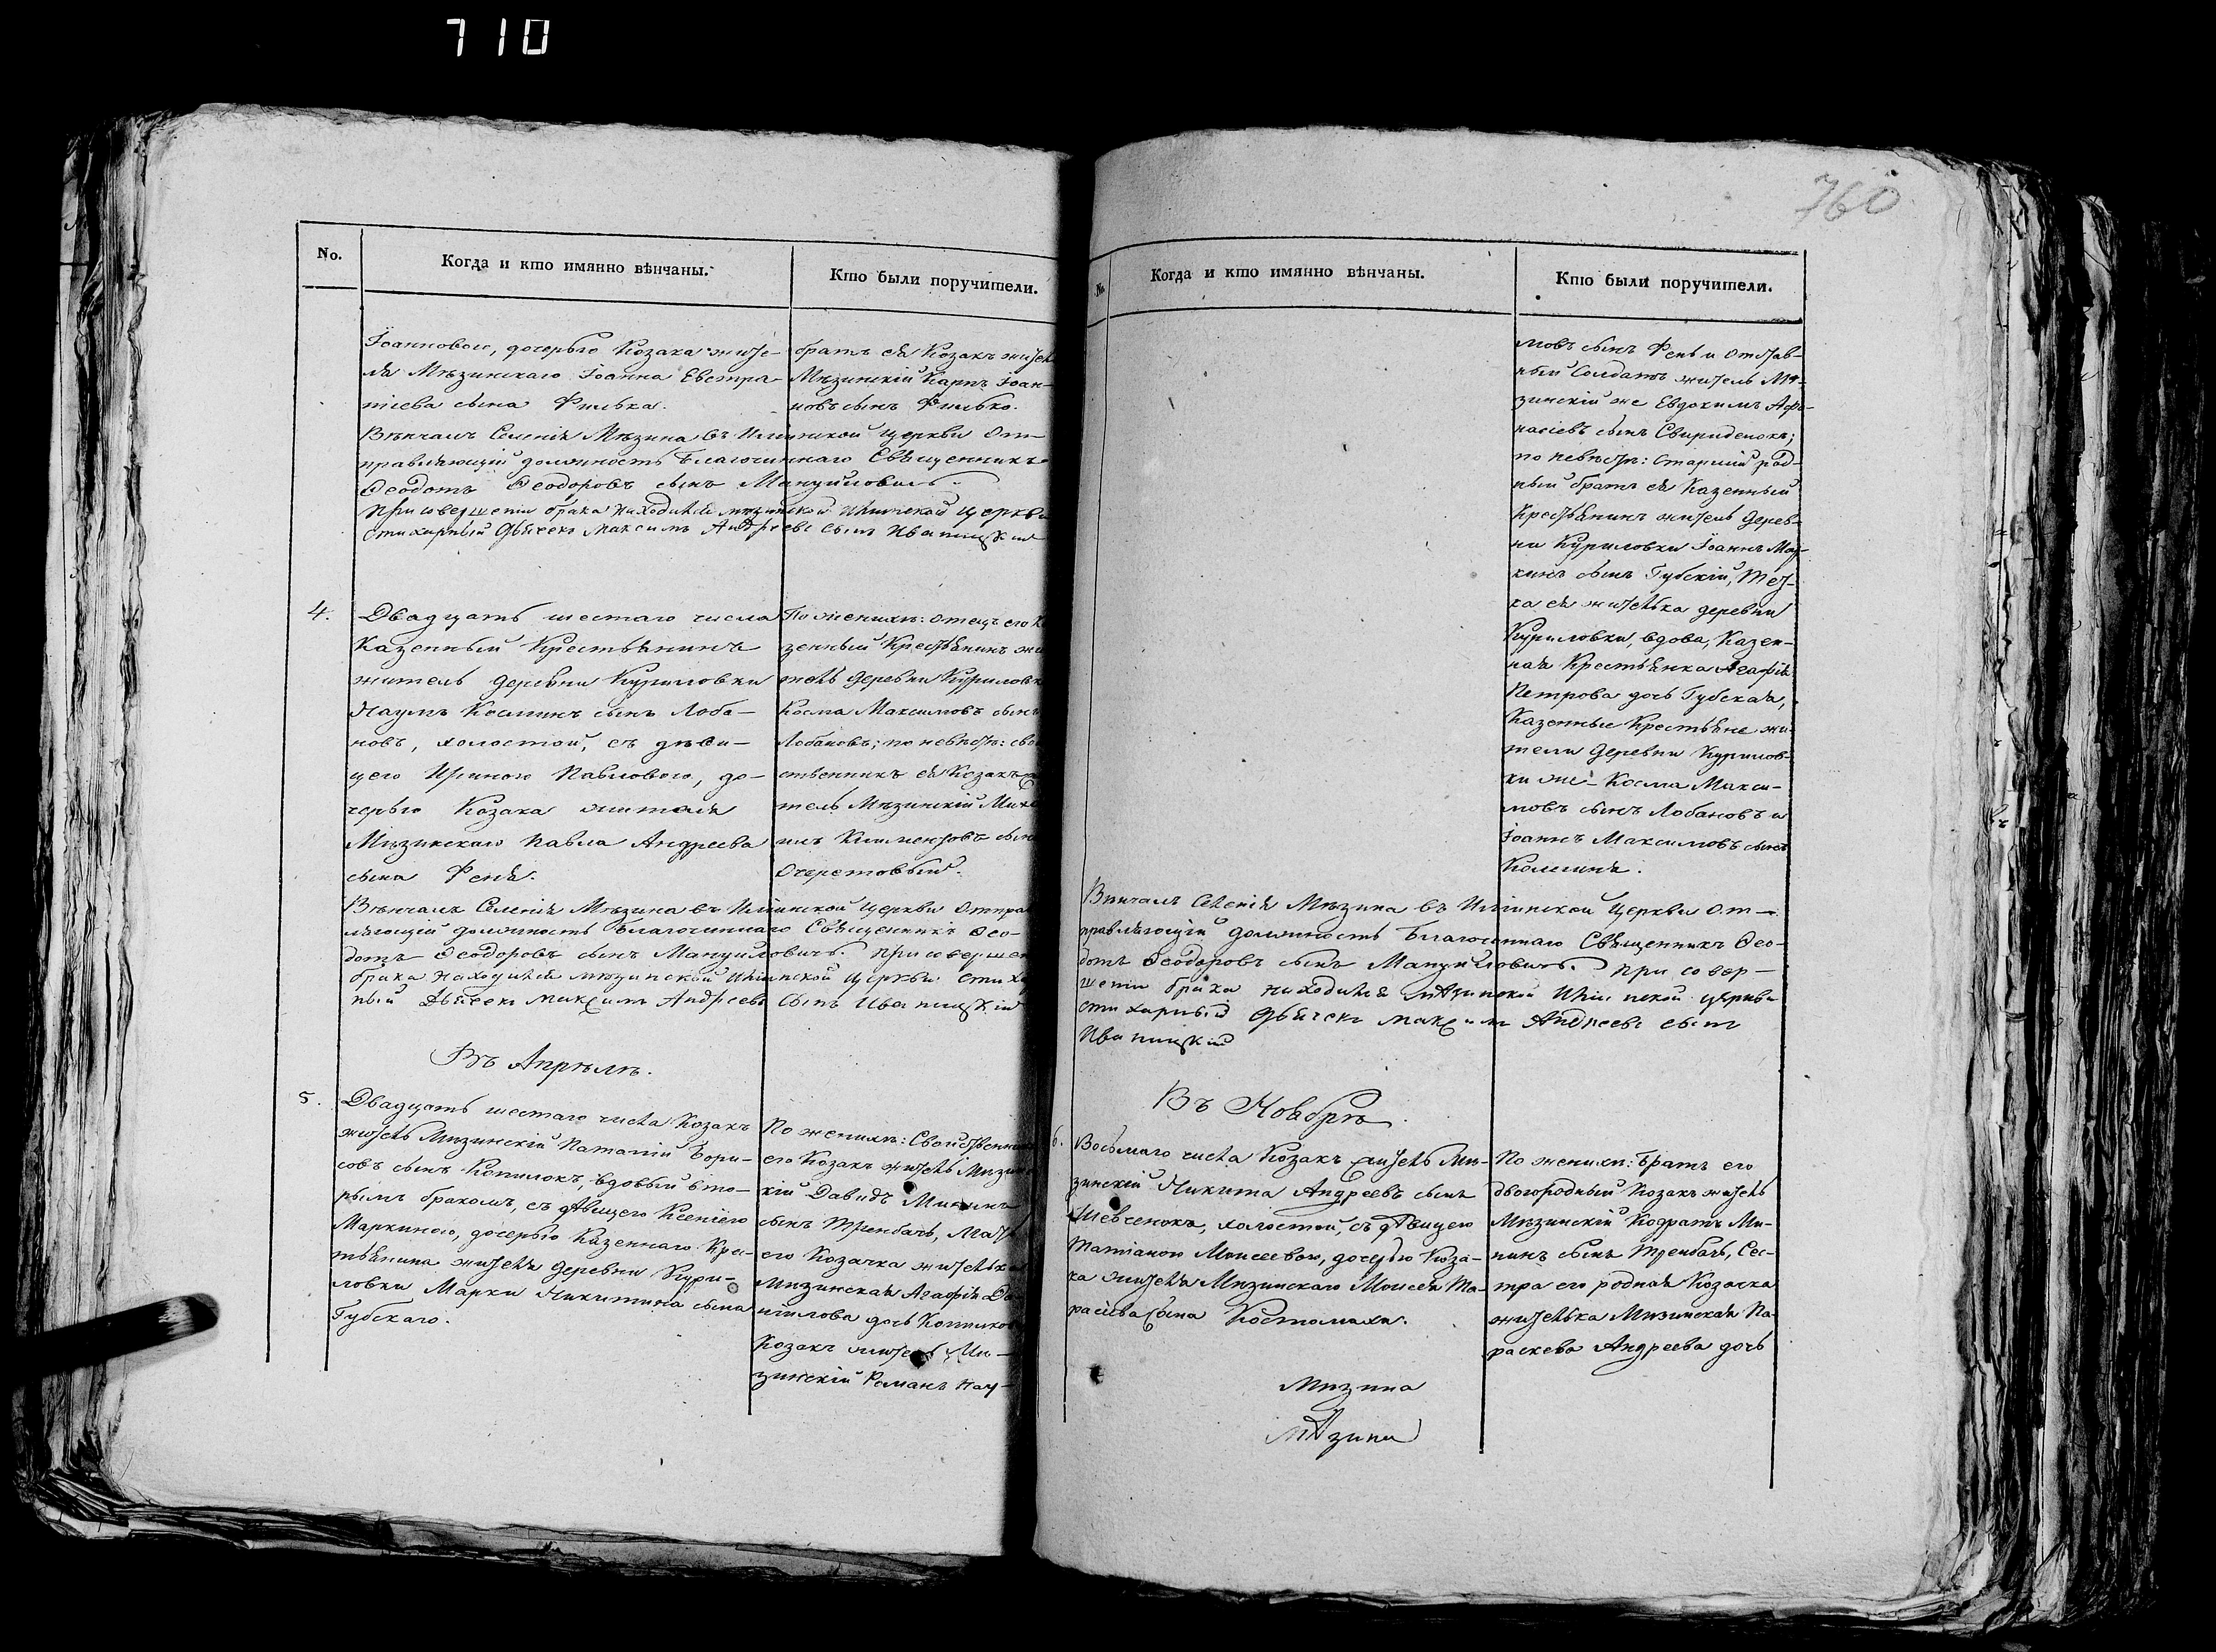 710
No.
Когда и кто имянно вѣнчаны.
Кто были поручители.
Іоанновою, дочерью Козака жите-
ля Мѣзинскаго Іоанна Евстра-
тіева сына Филька.
братъ ея Козакъ жител
Мѣзинскій Карпъ Іоан-
новъ сынъ Филько.
Вѣнчалъ Селенія Мѣзина въ Илiинской Церкви От-
правляющій должность Благочиннаго Священникъ
Ѳеодотъ Ѳеодоровъ сынъ Мануйловичъ.
При совершеніи брака находился мѣзинской Илiинской Церкви
стихарный Дьячекъ Максимъ Андреевъ сынъ
4.
Двадцать шестаго числа
Казенный Крестьянинъ
житель деревни Куриловки
Наумъ Косминъ сынъ Лоба-
новъ, холостой, съ дѣви-
цею Ириною Павловою, до-
черью Козака жителя
Мѣзинскаго Павла Андреева
сына Феня.
По женихѣ: отецъ его К
зенный Крестьянинъ жи
тель деревни Куриловк
Косма Максимовъ сынъ
Лобановъ; по невѣстѣ: сво
ственникъ ея Козакъ
тель Мѣзинскій Миха
илъ Климентовъ сын
Очеретовый.
Вѣнчалъ Селенія Мѣзина въ Илiинской Церкви Отпра
вляющій должность Благочиннаго Священникъ Ѳео-
дотъ Ѳеодоровъ сынъ Мануйловичъ. При совершен
брака находился мѣзинской Илiинской Церкви стиха
ный Дьячекъ Максимъ Андреевъ сынъ
Въ Апрѣлѣ.
5.
Двадцать шестаго числа Козакъ
житель Мѣзинскій Патапій Бори-
совъ сынъ Копилокъ, вдовый вто-
рымъ бракомъ, съ дѣвицею Ксеніею
Маркиною, дочерью Казеннаго Кре-
стьянина жителя деревни Кури-
ловки Марки Никитина сына
Губскаго.
По женихѣ: Свойственни
его Козакъ житель Мѣзин
кій Давидъ Мининъ
сынъ Трембачъ, Мать
его Козачка жителька
Мѣзинская Агафія Да
нилова дочь Копилков
Козакъ житель Мѣ-
зинскій Романъ Нау-
760
No.
Когда и кто имянно вѣнчаны.
Кто были поручители.
мовъ сынъ Фень и отстав-
ный Солдатъ житель Мѣ-
зинскій же Евдокимъ Афа-
насіевъ сынъ Свириденокъ;
по невѣстѣ: Старшій род-
ный братъ ея Казенный
Крестьянинъ житель дерев-
ни Куриловки Іоаннъ Мар-
кинъ сынъ Губскій, Тет-
ка ея жителька деревни
Куриловки, вдова, Казен-
ная Крестьянка Агафія
Петрова дочь Губская,
Казенные Крестьяне жи-
тели деревни Курилов-
ки же Косма Макси-
мовъ сынъ Лобановъ и
Іоаннъ Максимовъ сынъ
Вѣнчалъ Селенія Мѣзина въ Илiинской Церкви От-
правляющій должность Благочиннаго Священникъ Ѳео-
дотъ Ѳеодоровъ сынъ Мануйловичъ. При совер-
шеніи брака находился мѣзинской Илiинской церкви
стихарный Дьячекъ Максимъ Андреевъ сынъ
Въ Ноябрѣ.
6.
Восьмаго числа Козакъ житель Мѣ-
зинскій Никита Андреевъ сынъ
Шевченокъ, холостой, съ дѣвицею
Татіаною Моисеевою, дочерью Коза-
ка жителя Мѣзинскаго Моисея Та-
расіева сына Костомахи.
По женихѣ: Братъ его
двоюродный Козакъ житель
Мѣзинскій Кодратъ Ми-
нинъ сынъ Трембачъ, Сес-
тра его родная Козачка
жителька Мѣзинская Па-
раскева Андреева дочь
Мѣзина
мѣзина